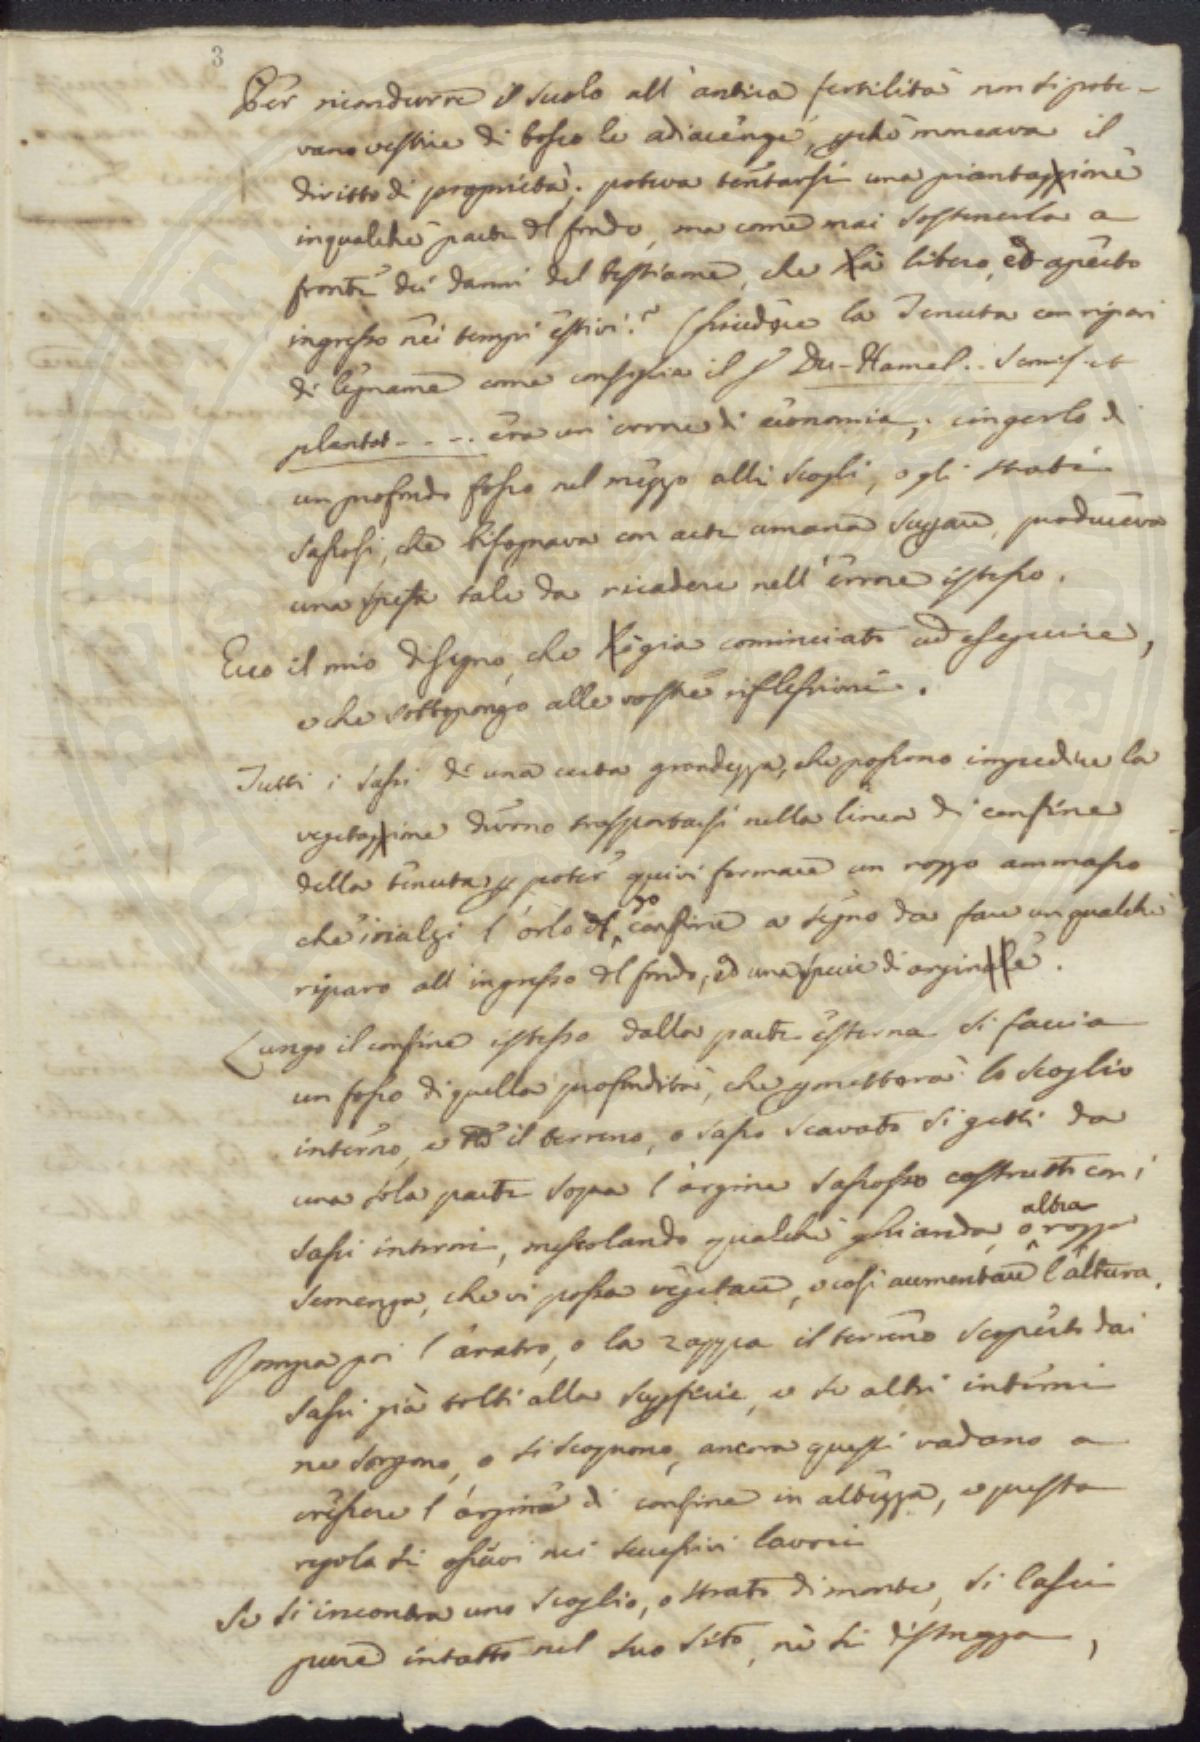 3
Per ricondurre il suolo all'antica fertilità non si pote-
vano vestire di bosco le adiacenze, perchè mancava il
diritto di proprietà; poteva tentarsi una piantazione
in qualche parte del fondo, ma come mai sostenerla a
fronte dei danni del bestiame, che ha libero, ed aperto
ingresso nei tempi estivi? Chiudere la Tenuta con ripari
di legname come consiglia il S. Du-Hamel.. Semis. et
plantat - - - . era un errore di economia; cingerlo di
un profondo fosso nel mezzo alli scogli, o gli strati
sassosi, che bisognava con arte umana segare, produceva
una spesa tale da ricadere nell'errore istesso.
Ecco il mio disegno, che ho già cominciato ad eseguire,
e che sottopongo alle vostre riflessioni.
Tutti i sassi di una certa grandezza, che possono impedire la
vegetazione devono trasportarsi nella linea di confine
della tenuta per poter quivi formare un rozzo ammasso
che inalzi l'orlo del confine a segno da fare un qualche
riparo all'ingresso del fondo, ed una specie di argine.
Lungo il confine istesso dalla parte esterna si faccia
un fosso di quella profondità, che permetterà lo scoglio
interno, e il terreno, o sasso scavato si getti da
una sola parte sopra l'argine sassoso costrutto con i
sassi interni, mescolando qualche ghianda, o altra rozza
semenza, che vi possa vegetare, e così aumentare l'altura.
Rompa poi l'aratro, o la zappa il terreno scoperto dai
sassi già tolti alla superficie, e se altri interni
ne sorgono, o si scoprono, ancora questi vadano a
crescere l'argine di confine in altezza, e questa
regola si osservi nei successivi lavori
Se si incontra uno scoglio, o strato di monte, si lasci
pure intatto nel suo sito, nè si distrugga,